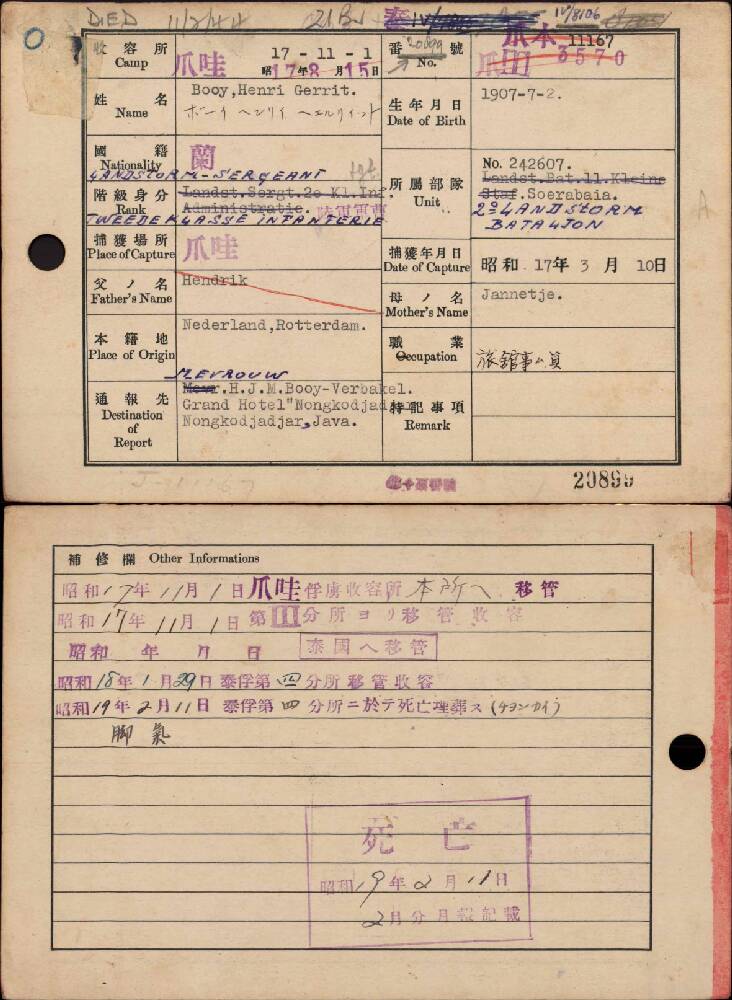 DIED 11/2/44 21Bn 泰IV IV/8106
收容所 Camp 爪哇 17-11-1 昭17年8月15日
番號 No. 20899 爪本 11167 爪III 3570
姓名 Name Booy,Henri Gerrit.
ボーイ ヘンリイ ヘエルリィット
生年月日 Date of Birth 1907-7-2.
國籍 Nationality 蘭
LANDSTORM-SERGEANT sgt
階級身分 Rank Landst.Sergt.2e Kl.Inf. Administratie.
TWEEDE KLASSE INFANTERIE
所屬部隊 Unit No. 242607.
Landst.Bat.11.Kleine
Staf.Soerabaia.
2e LANDSTORM
BATALJON
捕獲場所 Place of Capture 爪哇
捕獲年月日 Date of Capture 昭和 17年 3月 10日
父ノ名 Father's Name Hendrik
母ノ名 Mother's Name Jannetje.
本籍地 Place of Origin Nederland,Rotterdam.
職業 Occupation 旅館事ム員
MEVROUW
通報先 Destination of Report Mevr.H.J.M.Booy-Verbakel.
Grand Hotel"Nongkodjadjar
Nongkodjadjar,Java.
特記事項 Remark
J-11167
20899
補修欄 Other Informations
昭和17年11月1日爪哇俘虜收容所本所へ移管
昭和17年11月1日第III分所ヨリ移管收容
昭和 年 月 日 泰国へ移管
昭和18年1月29日泰俘第四分所移管收容
昭和19年2月11日泰俘第四分所ニ於テ死亡埋葬ス(チヨンカイ)
脚氣
死亡
昭和19年2月11日
2月分月報記載
A